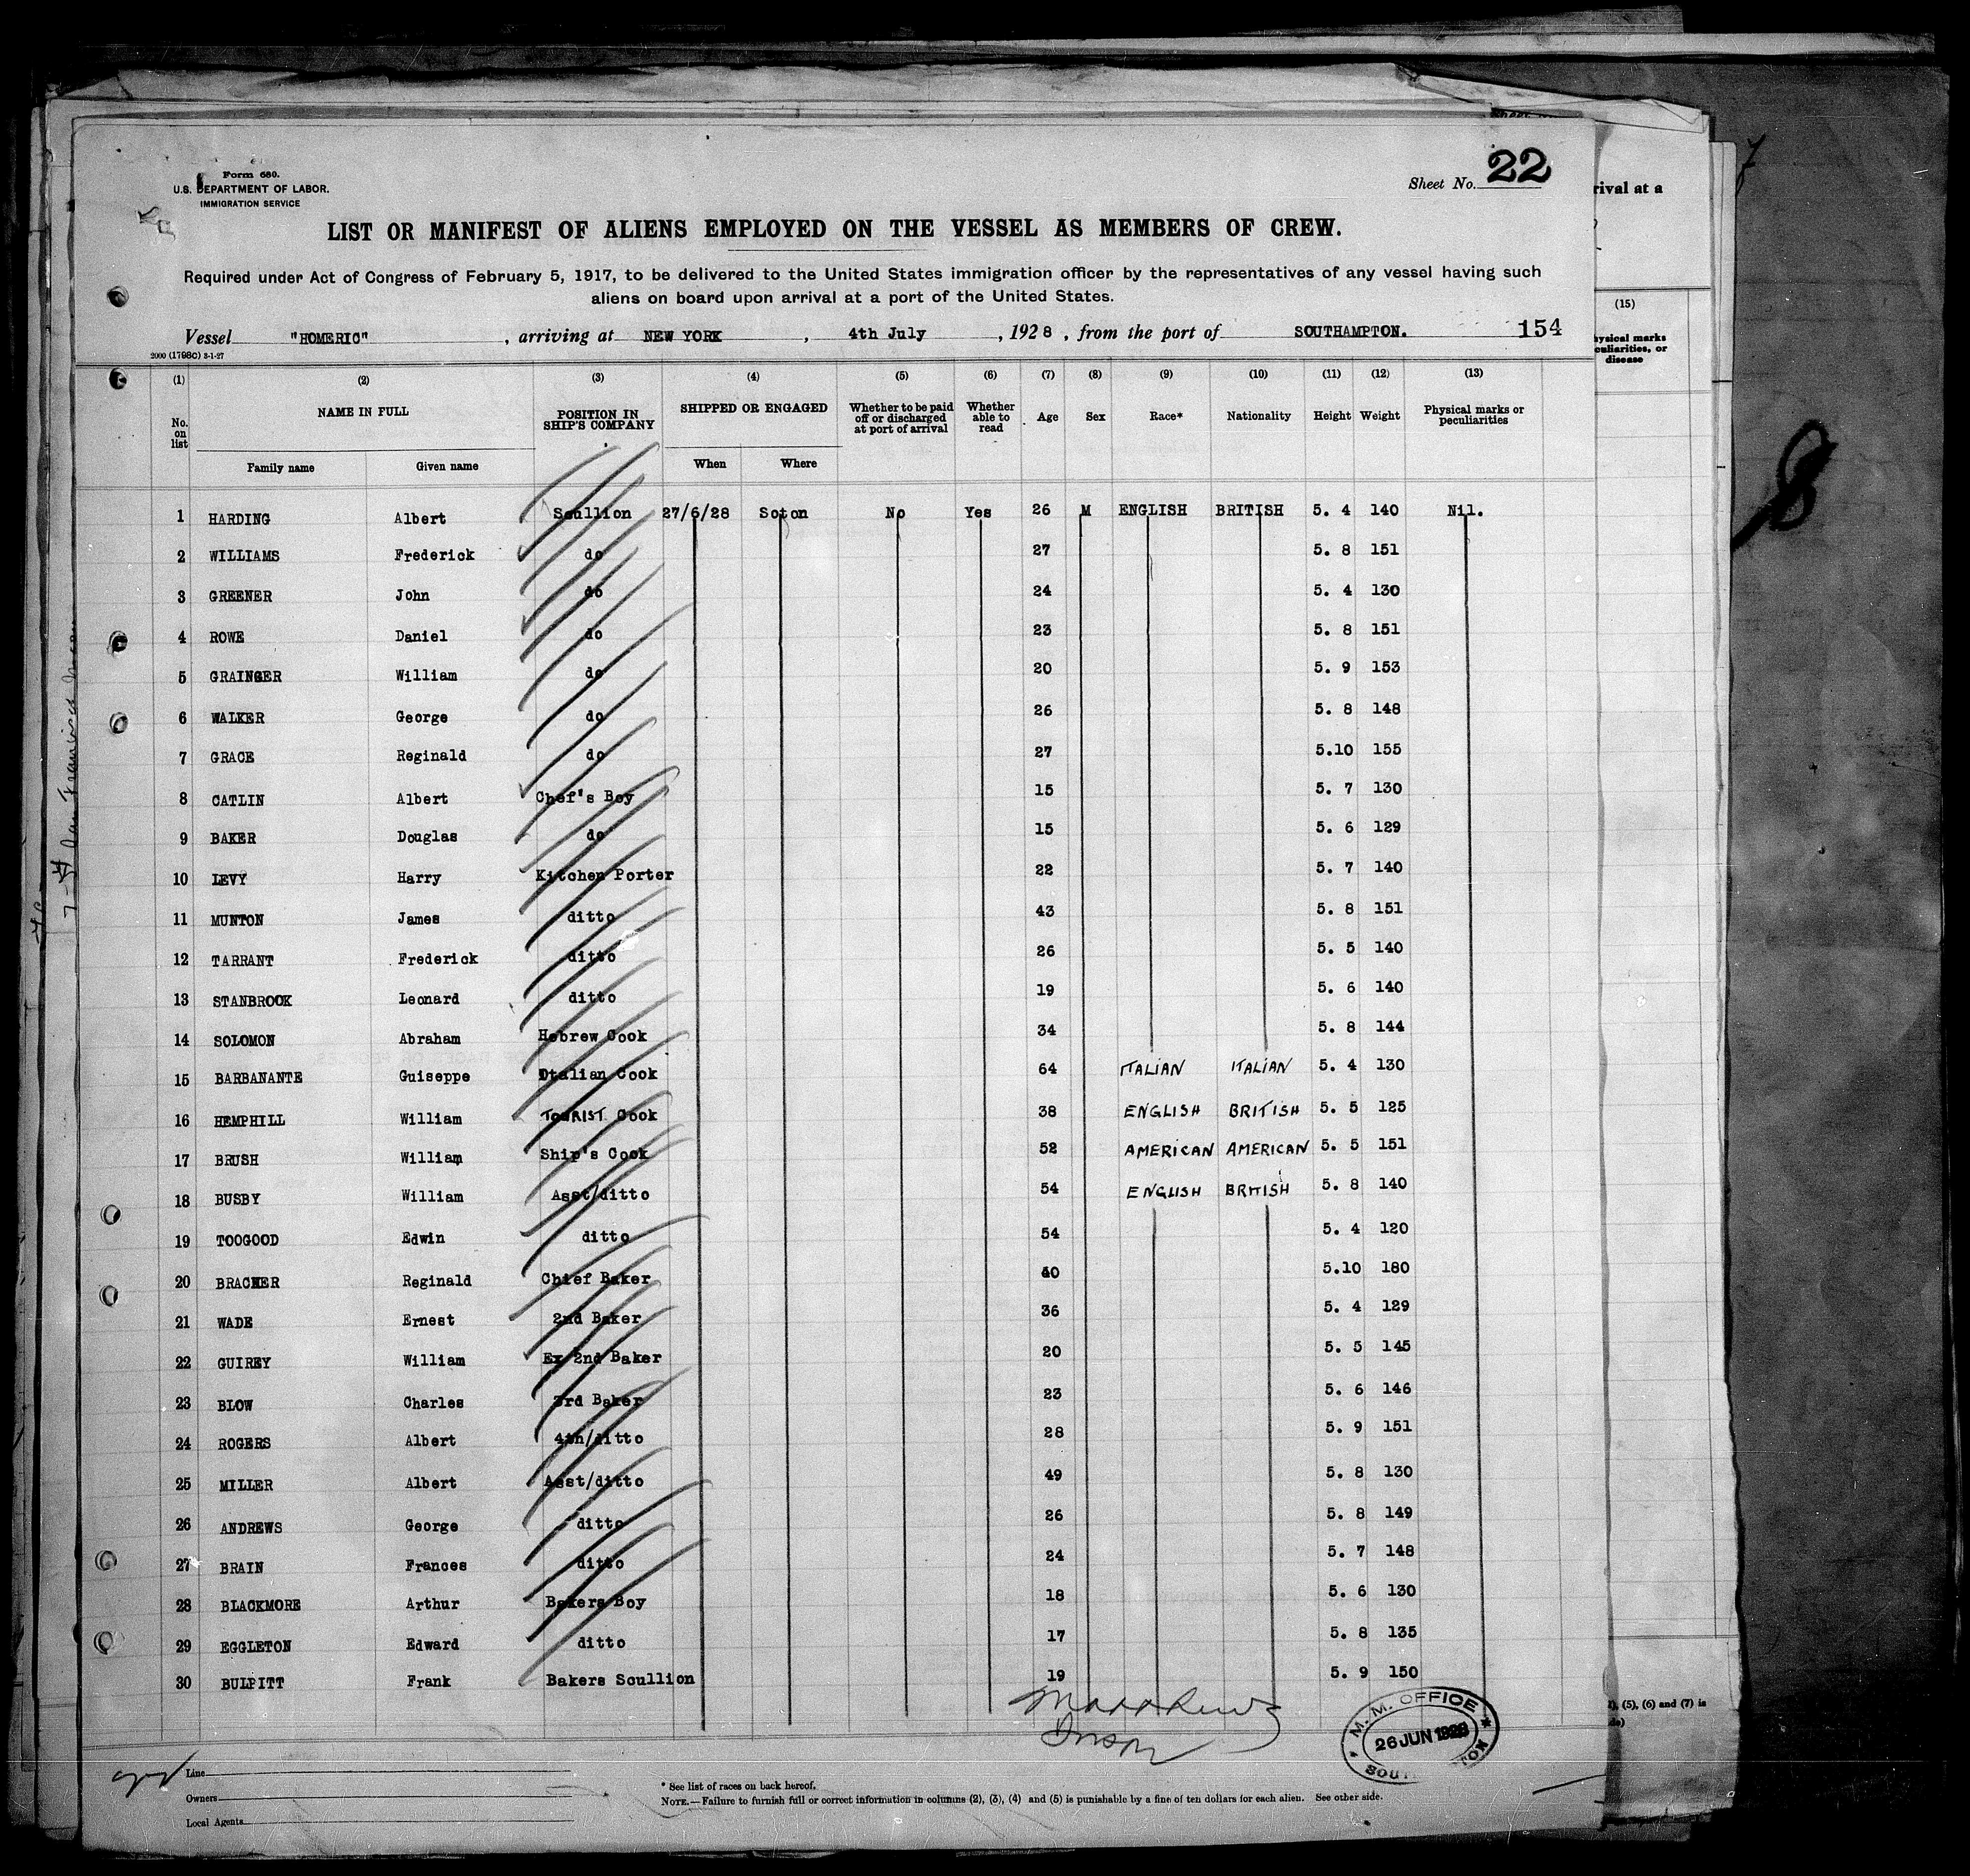 Form 680.
U.S. DEPARTMENT OF LABOR.
IMMIGRATION SERVICE
Sheet No. 22
rival at a
LIST OR MANIFEST OF ALIENS EMPLOYED ON THE VESSEL AS MEMBERS OF CREW.
Required under Act of Congress of February 5, 1917, to be delivered to the United States immigration officer by the representatives of any vessel having such
aliens on board upon arrival at a port of the United States.
Vessel "HOMERIC", arriving at NEW YORK, 4th July, 1928, from the port of SOUTHAMPTON. 154
2000 (1798c) 3-1-27
(1) (2) (3) (4) (5) (6) (7) (8) (9) (10) (11) (12) (13)
(15)
No. on list NAME IN FULL POSITION IN SHIP'S COMPANY SHIPPED OR ENGAGED Whether to be paid off or discharged at port of arrival Whether able to read Age Sex Race* Nationality Height Weight Physical marks or peculiarities
Family name Given name When Where
hysical marks
culiarities, or
disease
1 HARDING Albert Scullion 27/6/28 Soton No Yes 26 M ENGLISH BRITISH 5. 4 140 Nil.
2 WILLIAMS Frederick do 27 5. 8 151
3 GREENER John do 24 5. 4 130
4 ROWE Daniel do 23 5. 8 151
5 GRAINGER William do 20 5. 9 153
6 WALKER George do 26 5. 8 148
7 GRACE Reginald do 27 5.10 155
8 CATLIN Albert Chef's Boy 15 5. 7 130
9 BAKER Douglas do 15 5. 6 129
10 LEVY Harry Kitchen Porter 22 5. 7 140
11 MUNTON James ditto 43 5. 8 151
12 TARRANT Frederick ditto 26 5. 5 140
13 STANBROOK Leonard ditto 19 5. 6 140
14 SOLOMON Abraham Hebrew Cook 34 5. 8 144
15 BARBANANTE Guiseppe Italian Cook 64 ITALIAN ITALIAN 5. 4 130
16 HEMPHILL William TOURIST Cook 38 ENGLISH BRITISH 5. 5 125
17 BRUSH William Ship's Cook 52 AMERICAN AMERICAN 5. 5 151
18 BUSBY William Asst/ditto 54 ENGLISH BRITISH 5. 8 140
19 TOOGOOD Edwin ditto 54 5. 4 120
20 BRACHER Reginald Chief Baker 40 5.10 180
21 WADE Ernest 2nd Baker 36 5. 4 129
22 GUIREY William Ex 2nd Baker 20 5. 5 145
23 BLOW Charles 3rd Baker 23 5. 6 146
24 ROGERS Albert 4th/ditto 28 5. 9 151
25 MILLER Albert Asst/ditto 49 5. 8 130
26 ANDREWS George ditto 26 5. 8 149
27 BRAIN Frances ditto 24 5. 7 148
28 BLACKMORE Arthur Bakers Boy 18 5. 6 130
29 EGGLETON Edward ditto 17 5. 8 135
30 BULPITT Frank Bakers Scullion 19 5. 9 150
M. M. OFFICE
26 JUN 1928
, (5), (6) and (7) is
Line
Owners
Local Agents
* See list of races on back hereof.
NOTE.—Failure to furnish full or correct information in columns (2), (3), (4) and (5) is punishable by a fine of ten dollars for each alien. See other side.